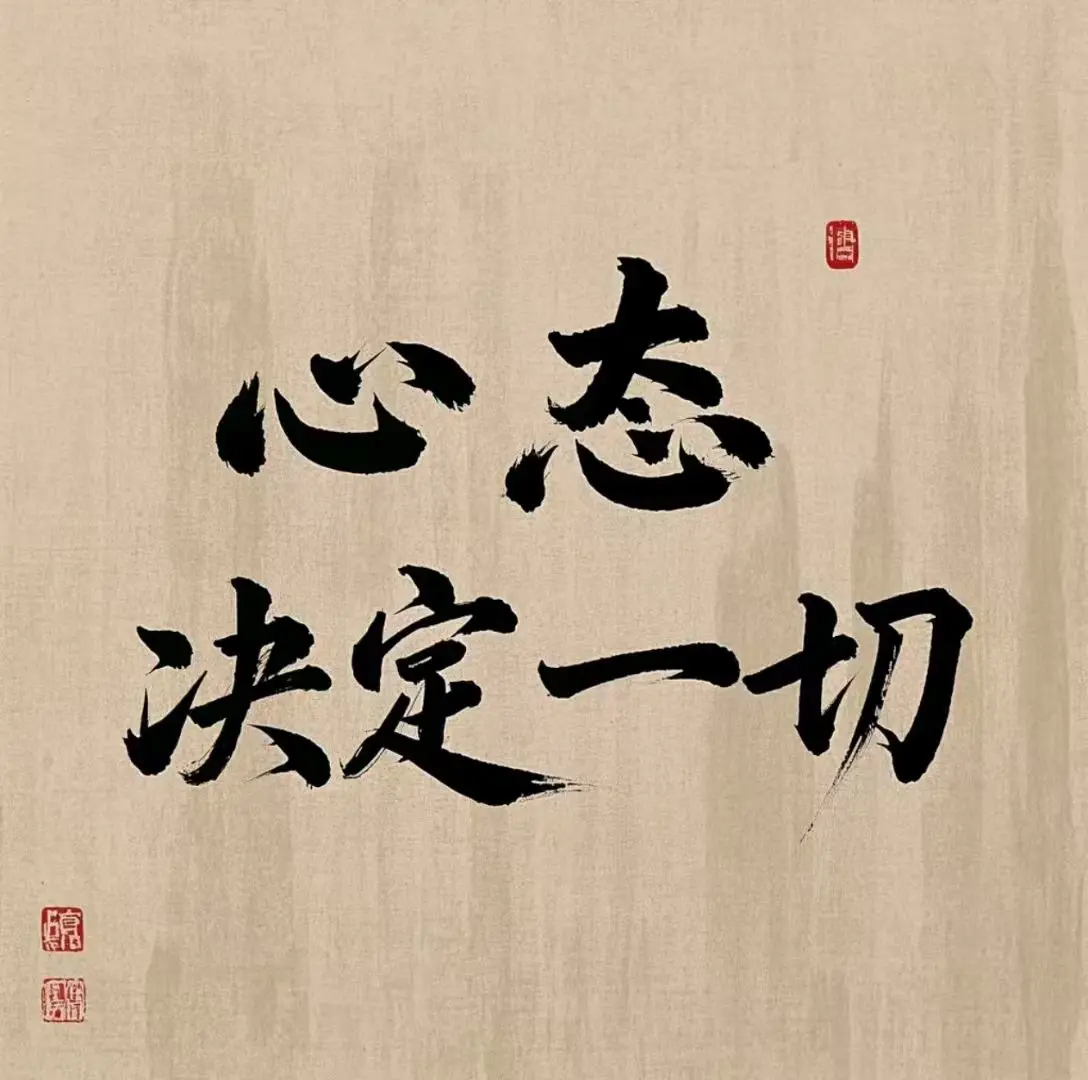 心态
决定一切